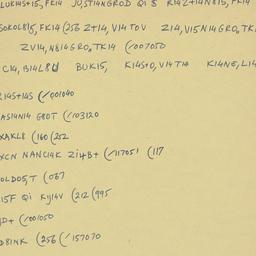 LUK14S+15,FK14 JU,ST14NGROD Q1 S K14Z+14N815,FK14
SOKOL815,FK14 (256 Z+14,V14TOV Z14,V15N14GRO,TK1
ZV14,N814GRO,TK14 (/007050
C14,B14L8U BUK15, K14S+0,V14TH K14NE,L14
R14S+14S (/001040
AS14N14 G80T (/103120
XAKL8 (160 (252
XCN NANC14K Z14B+ (/117051 (117
OLDO5,T (067
15F Q1 KY14V (212 (995
JD+ (/001050
D81NK (256 (/157070